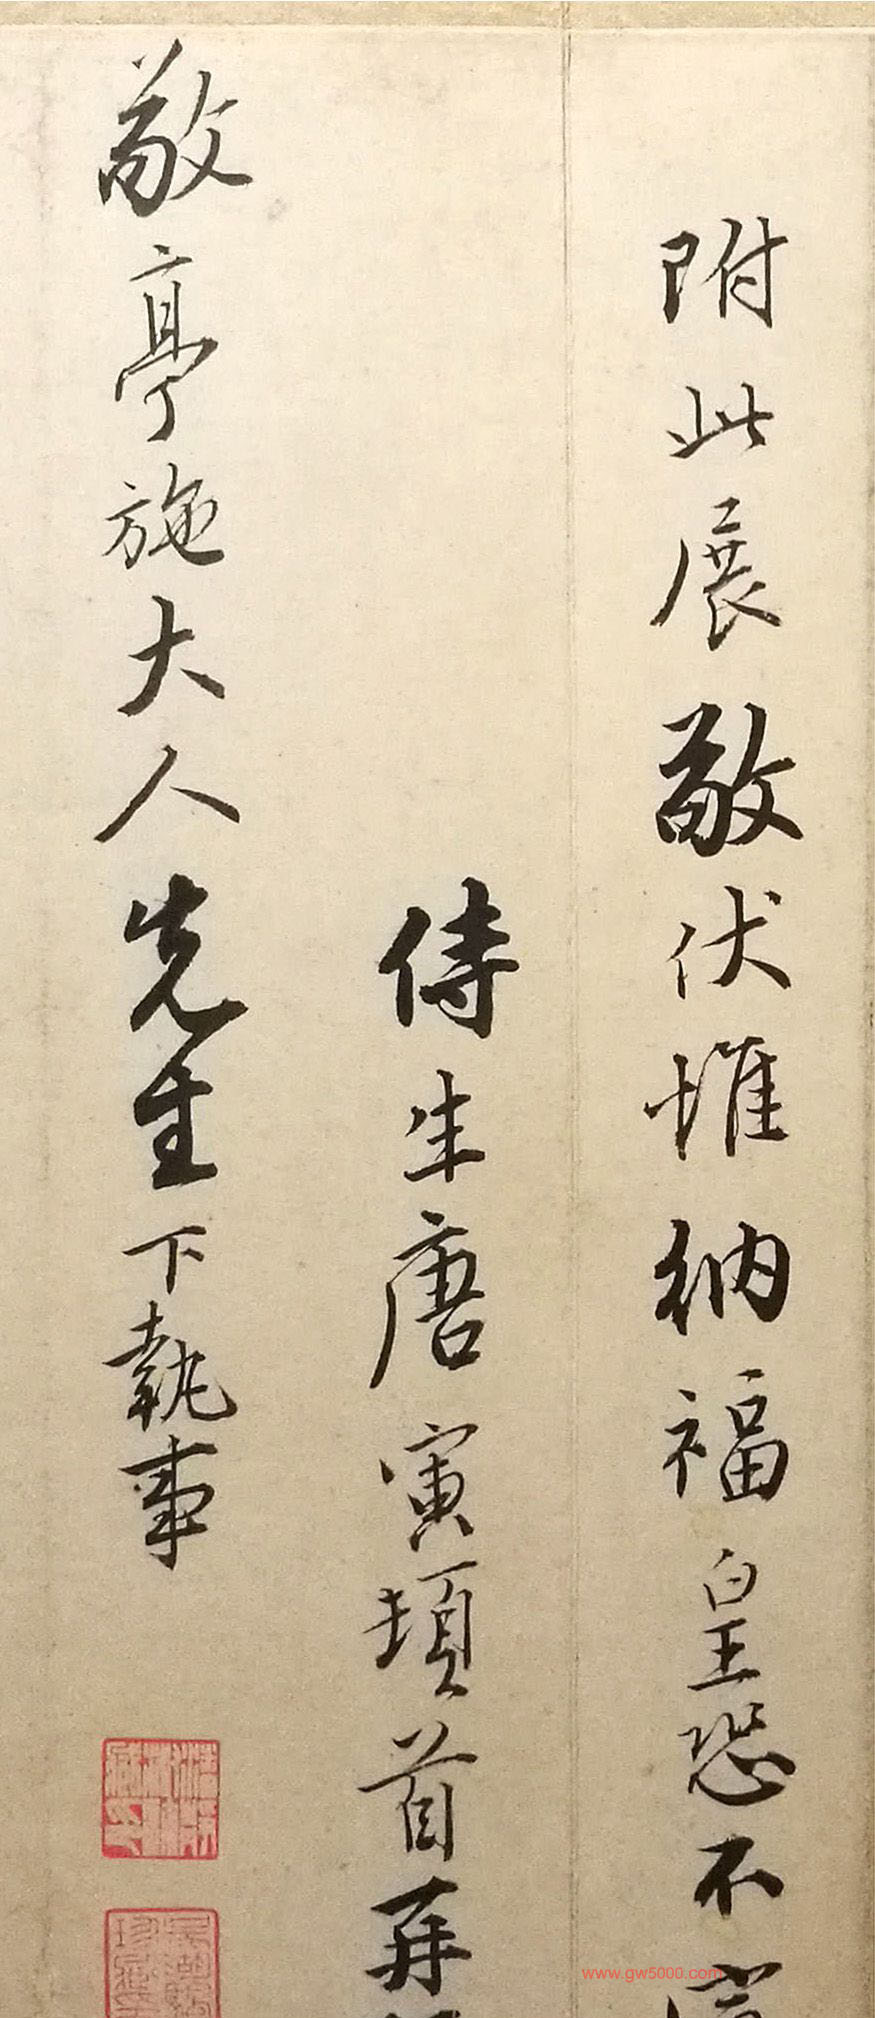 附此展敬伏惟納福皇恐不
侍生唐寅頓首再
敬亭施大人先生下執事
www.gw5000.com